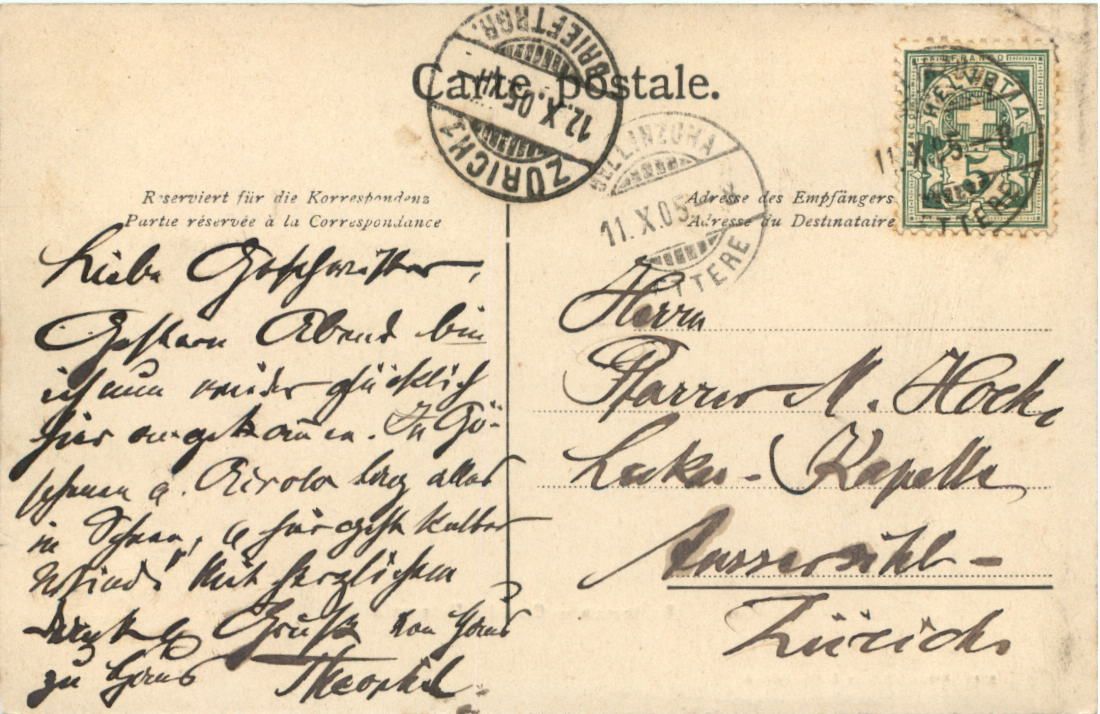 Carte postale.
ZÜRICH 1
12.X.05
BRIEFTRGR.
BELLINZONA
11.X.05
LETTERE
HELVETIA
5
Reserviert für die Korrespondenz
Partie réservée à la Correspondance
Adresse des Empfängers
Adresse du Destinataire
Liebe Geschwister,
Gestern Abend bin
ich nun wieder glücklich
hier angekommen. In Gö-
schenen u. Airolo lag alles
in Schnee, u hier geht kalter
Wind! Mit herzlichem
Dank u Gruß von Haus
zu Haus Theophil.
Herrn
Pfarrer M. Hoch,
Kapelle
Aussersihl-
Zürich